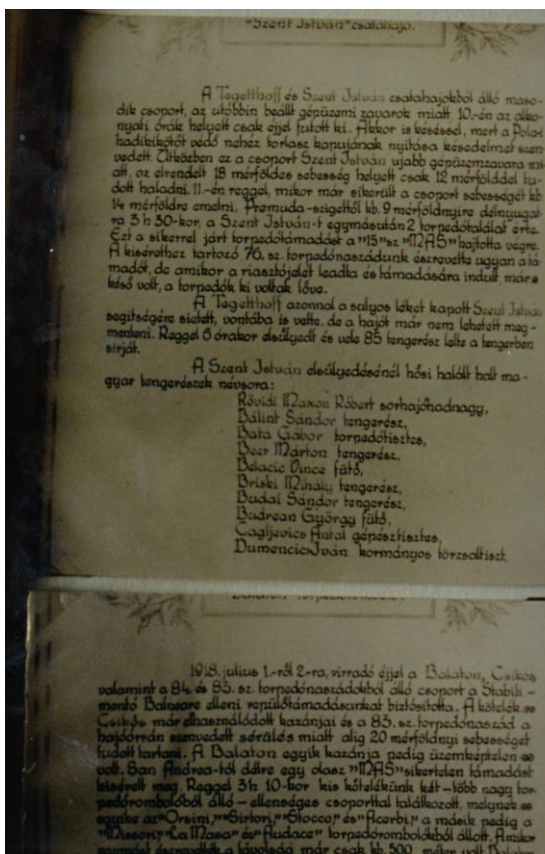 "Szent István" csatahajó.
A Tegetthoff és Szent István csatahajókból álló máso-
dik csoport, az utóbbin beállt gépüzemi zavarok miatt 10.-én az alko-
nyati órák helyett csak éjjel futott ki. Akkor is késéssel, mert a Polai
hadikikötőt védő nehéz torlasz kapujának nyitása késedelmet szen-
vedett. Útközben ez a csoport Szent István ujabb gépüzemzavara mi-
att, az elrendelt 18 mérföldes sebesség helyett csak 12 mérfölddel tu-
dott haladni. 11.-én reggel, mikor már sikerült a csoport sebességét kb
14 mérföldre emelni, Premuda-szigettől kb. 9 mérföldnyire délnyugat-
ra 3 h 30-kor, a Szent István-t egymásután 2 torpedótalálat érte.
Ezt a sikerrel járt torpedótámadást a "15" sz "MAS" hajtotta végre.
A kísérethez tartozó 76. sz. torpedónaszádunk észrevette ugyan a tá-
madót, de amikor a riasztójelet leadta és támadására indult már
késő volt, a torpedók ki voltak lőve.
A Tegetthoff azonnal a sulyos léket kapott Szent István
segitségére sietett, vontába is vette, de a hajót már nem lehetett meg-
menteni. Reggel 6 órakor elsülyedt és vele 85 tengerész lelte a tengerben
sirját.
A Szent István elsülyedésénél hősi halált halt ma-
gyar tengerészek névsora:
Rövidi Maxon Róbert sorhajóhadnagy,
Bálint Sándor tengerész,
Bata Gábor torpedótisztes,
Beer Márton tengerész,
Belacic Vince fűtő,
Briski Mihály tengerész,
Budai Sándor tengerész,
Budrean György fűtő,
Cagljevics Antal gépésztisztes,
Dumencics Iván kormányos törzsaltiszt,
Balaton
1918. julius 1.-ről 2-ra, virradó éjjel a Balaton, Csikós
valamint a 84. és 83. sz. torpedónaszádokból álló csoport a Stabili-
mentó Balneare elleni repülőtámadásunkat biztósította. A kötelék
Csikós már elhasználódott kazánjai és a 83. sz. torpedónaszád a
hajóorrán szenvedett sérülés miatt alig 20 mérföldnyi sebességet
tudott tartani. A Balaton egyik kazánja pedig üzemképtelen
volt. San Andrea-tól délre egy olasz "MAS" sikertelen támadást
kisérelt meg. Reggel 3h 10-kor kis kötelékünk két - több nagy tor-
pedórombolóból álló - ellenséges csoporttal találkozott, melynek
egyike az "Orsini," "Sirtori," "Stocco," és "Acerbi," a másik pedig a
"Missori," "La Masa" és "Audace" torpedórombolókból állott. Amikor
egymást észrevették a távolság már csak kb. 500 méter volt. Balaton